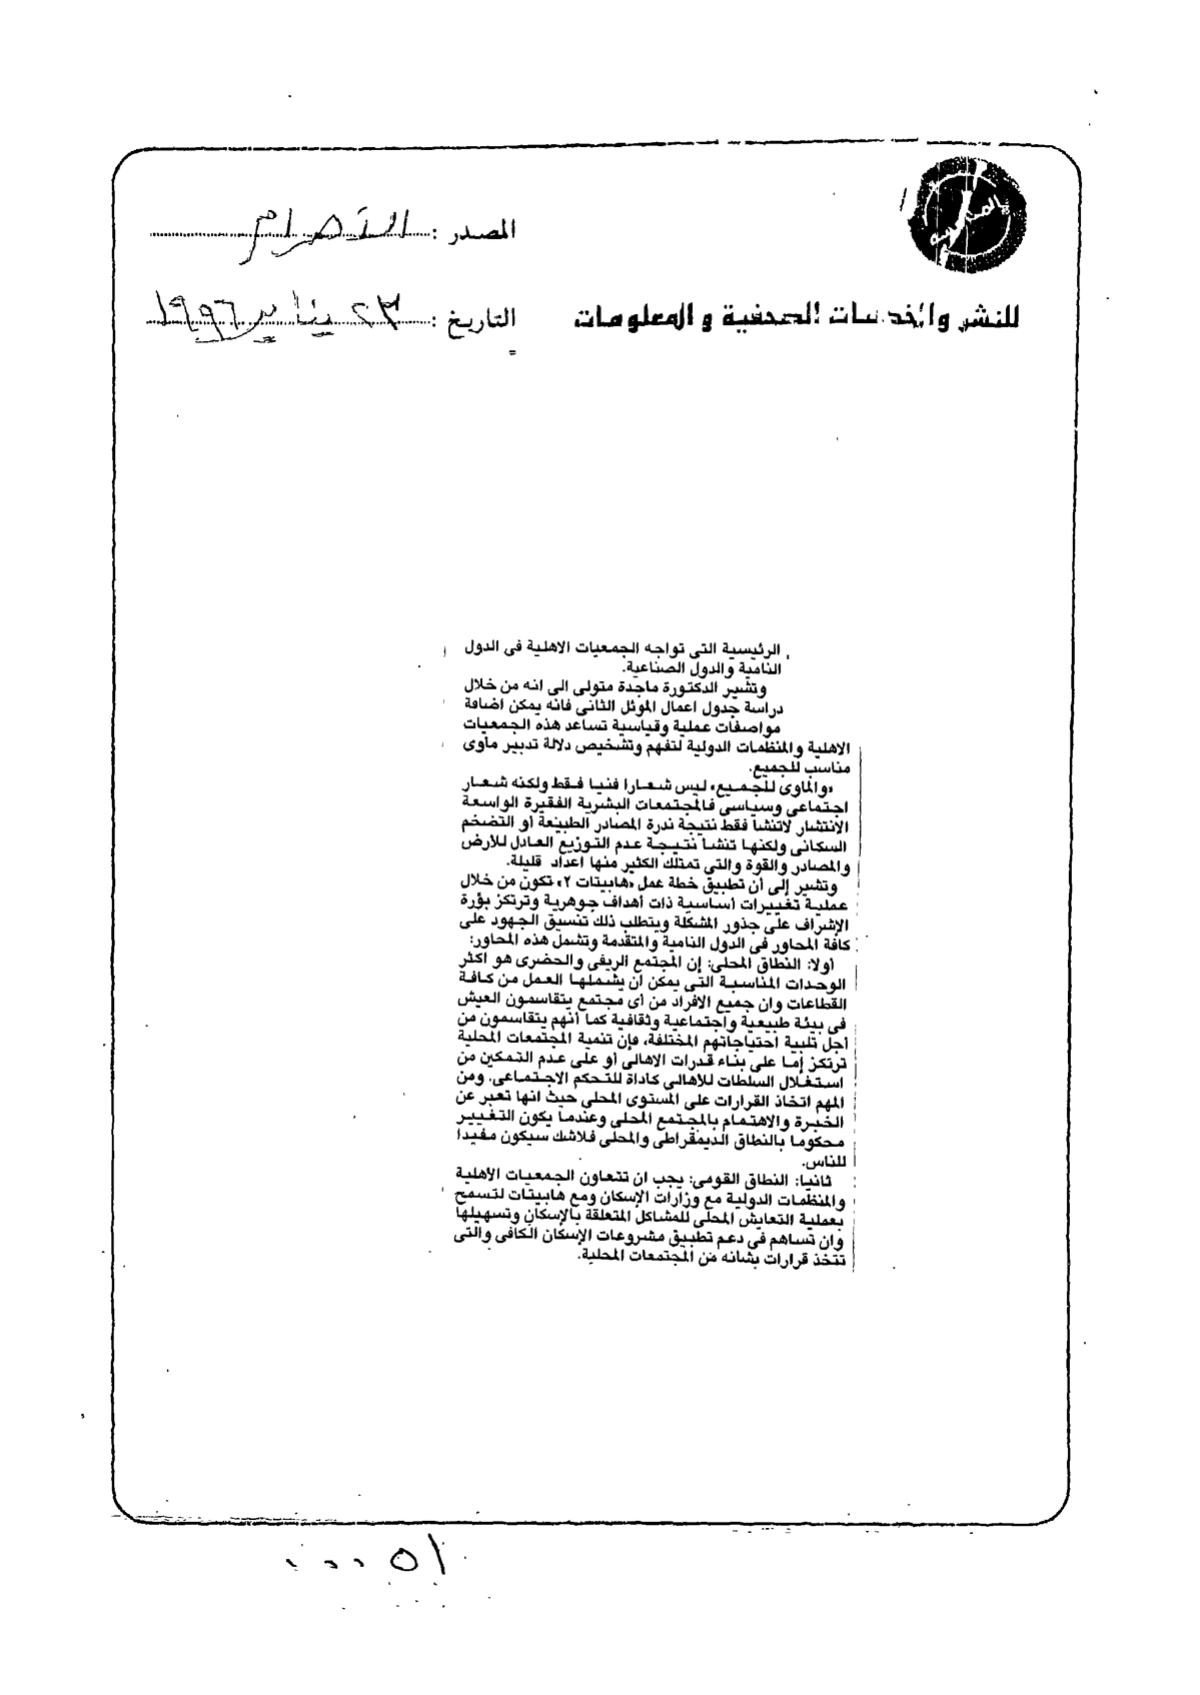 المصدر : الأهرام
للنشر والخدمات الصحفية والمعلومات
التاريخ : ٢٣ يناير ١٩٩٦
الرئيسية التى تواجه الجمعيات الاهلية فى الدول
النامية والدول الصناعية.
وتشير الدكتورة ماجدة متولى الى انه من خلال
دراسة جدول اعمال الموئل الثانى فانه يمكن اضافة
مواصفات عملية وقياسية تساعد هذه الجمعيات
الاهلية والمنظمات الدولية لتفهم وتشخيص دلالة تدبير مأوى
مناسب للجميع.
«والماوى للجميع» ليس شعارا فنيا فقط ولكنه شعار
اجتماعى وسياسى فالمجتمعات البشرية الفقيرة الواسعة
الانتشار لاتنشأ فقط نتيجة ندرة المصادر الطبيعة أو التضخم
السكانى ولكنها تنشأ نتيجة عدم التوزيع العادل للأرض
والمصادر والقوة والتى تمتلك الكثير منها أعداد قليلة.
وتشير إلى أن تطبيق خطة عمل «هابيتات ٢» تكون من خلال
عملية تغييرات أساسية ذات أهداف جوهرية وترتكز بؤرة
الإشراف على جذور المشكلة ويتطلب ذلك تنسيق الجهود على
كافة المحاور فى الدول النامية والمتقدمة وتشمل هذه المحاور:
أولا: النطاق المحلى: إن المجتمع الريفى والحضرى هو أكثر
الوحدات المناسبة التى يمكن أن يشملها العمل من كافة
القطاعات وان جميع الافراد من أى مجتمع يتقاسمون العيش
فى بيئة طبيعية واجتماعية وثقافية كما أنهم يتقاسمون من
أجل تلبية احتياجاتهم المختلفة، فإن تنمية المجتمعات المحلية
ترتكز إما على بناء قدرات الاهالى أو على عدم التمكين من
استغلال السلطات للأهالى كاداة للتحكم الاجتماعى. ومن
المهم اتخاذ القرارات على المستوى المحلى حيث انها تعبر عن
الخبرة والاهتمام بالمجتمع المحلى وعندما يكون التغيير
محكوما بالنطاق الديمقراطى والمحلى فلاشك سيكون مفيدا
للناس.
ثانيا: النطاق القومى: يجب ان تتعاون الجمعيات الأهلية
والمنظمات الدولية مع وزارات الإسكان ومع هابيتات لتسمح
بعملية التعايش المحلى للمشاكل المتعلقة بالإسكان وتسهيلها
وان تساهم فى دعم تطبيق مشروعات الإسكان الكافى والتى
تتخذ قرارات بشأنه من المجتمعات المحلية.